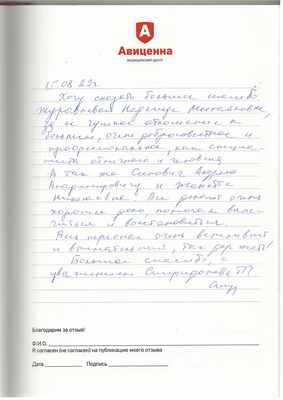 Авиценна
медицинский центр
15.08.22г.
Хочу сказать большое спасибо
Журавлевой Надежде
за её чуткое отношение к
больным, очень добросовестное и
профессиональное, как специа-
листа отличного и человека
А так же Андрею
Владимировичу и
Николаевне. Вы делаете очень
хорошее дело, помогая
и восстановиться.
Ваш персонал очень вежливый
и внимательный, так держать!
Большое спасибо, с
уважением Спиридонова
Благодарим за отзыв!
Ф.И.О.
Я согласен (не согласен) на публикацию моего отзыва
Дата Подпись